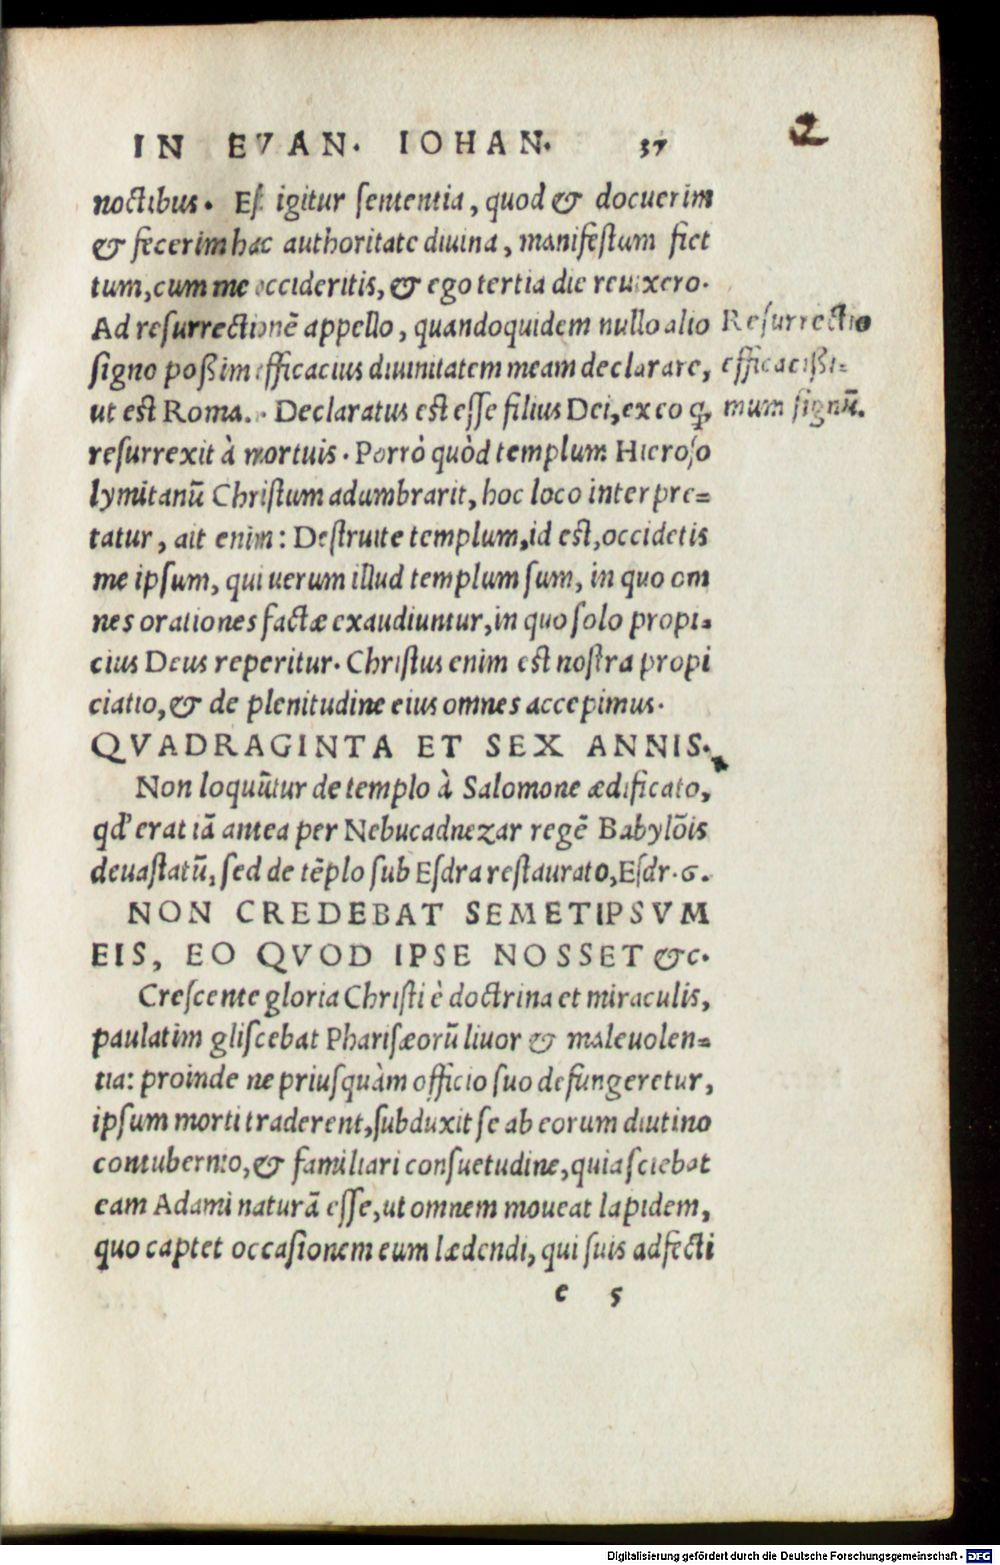 IN EVAN. IOHAN. 37
2
noctibus. Est igitur ſententia, quod & docuerim
& fecerim hac authoritate diuina, manifeſtum fiet
tum, cum me occideritis, & ego tertia die reuixero.
Ad reſurrectionē appello, quandoquidem nullo alio
ſigno poßim efficacius diuinitatem meam declarare,
ut est Roma. . Declaratus est eſſe filius Dei, ex eo ꝙ
reſurrexit à mortuis. Porrò quòd templum Hieroſo
lymitanū Chriſtum adumbrarit, hoc loco interpre=
tatur, ait enim: Deſtruite templum, id est, occidetis
me ipſum, qui uerum illud templum ſum, in quo om
nes orationes factæ exaudiuntur, in quo ſolo propi=
cius Deus reperitur. Chriſtus enim est noſtra propi
ciatio, & de plenitudine eius omnes accepimus.
QVADRAGINTA ET SEX ANNIS.
Non loquūtur de templo à Salomone ædificato,
qd' erat iā antea per Nebucadnezar regē Babylōis
deuaſtatū, ſed de tēplo ſub Eſdra reſtaurato, Eſdr. 6.
NON CREDEBAT SEMETIPSVM
EIS, EO QVOD IPSE NOSSET &c.
Creſcente gloria Chriſti è doctrina et miraculis,
paulatim gliſcebat Phariſæorū liuor & maleuolen=
tia: proinde ne priuſquàm officio ſuo defungeretur,
ipſum morti traderent, ſubduxit ſe ab eorum diutino
contubernio, & familiari conſuetudine, quia ſciebat
eam Adami naturā eſſe, ut omnem moueat lapidem,
quo captet occaſionem eum lædendi, qui ſuis adfecti
e 5
Reſurrectio
efficacißi=
mum ſignū.
Digitalisierung gefördert durch die Deutsche Forschungsgemeinschaft - DFG